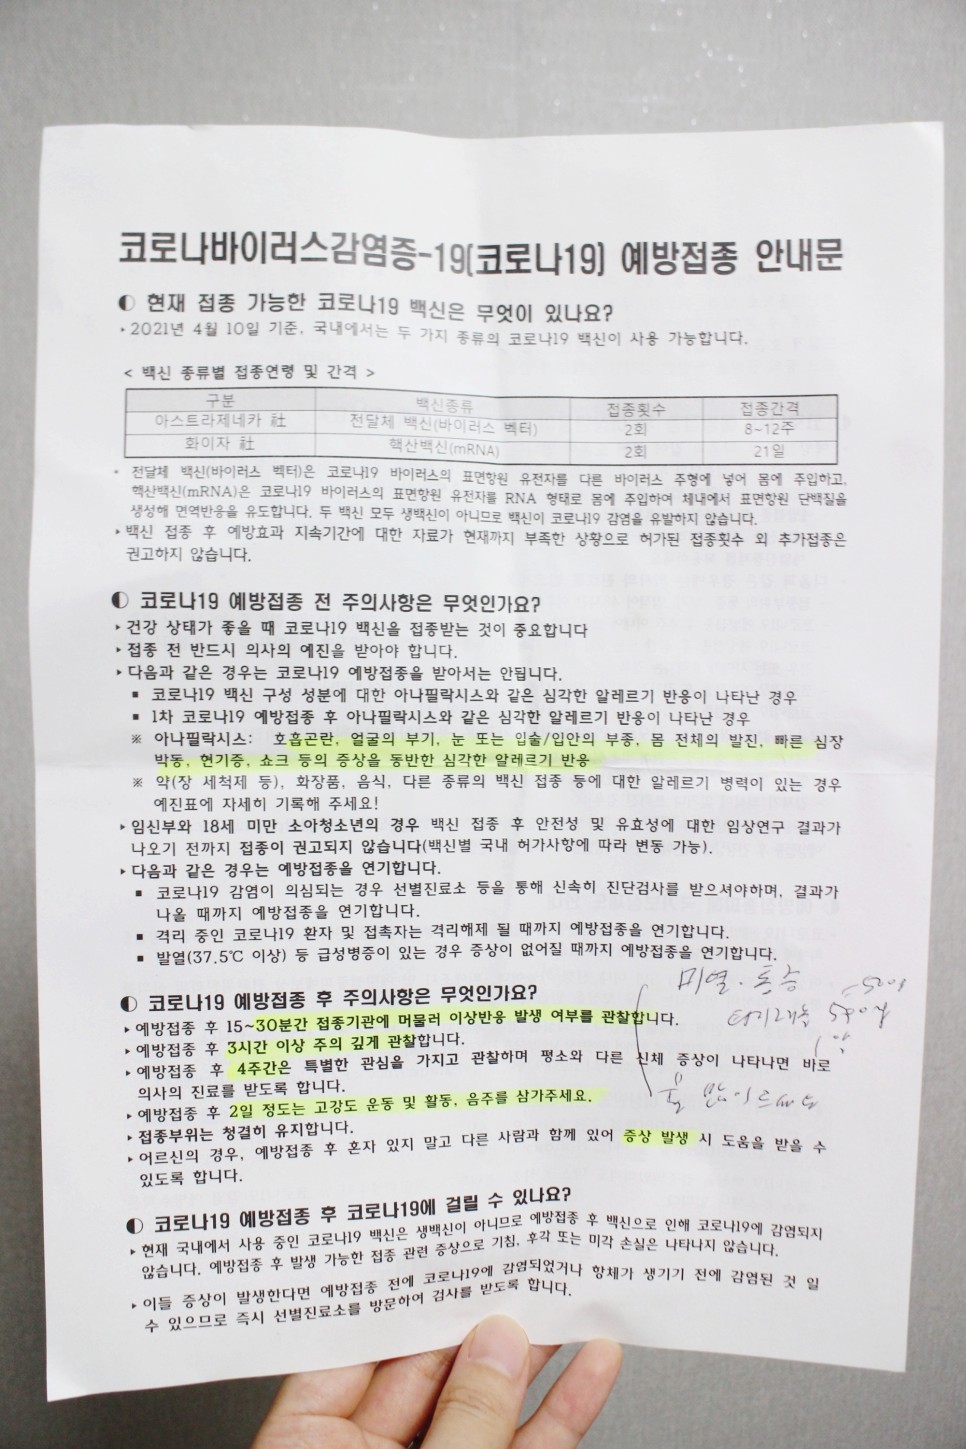 코로나바이러스감염증-19(코로나19) 예방접종 안내문
◐ 현재 접종 가능한 코로나19 백신은 무엇이 있나요?
‣ 2021년 4월 10일 기준, 국내에서는 두 가지 종류의 코로나19 백신이 사용 가능합니다.
< 백신 종류별 접종연령 및 간격 >
구분 백신종류 접종횟수 접종간격
아스트라제네카 社 전달체 백신(바이러스 벡터) 2회 8~12주
화이자 社 핵산백신(mRNA) 2회 21일
* 전달체 백신(바이러스 벡터)은 코로나19 바이러스의 표면항원 유전자를 다른 바이러스 주형에 넣어 몸에 주입하고,
핵산백신(mRNA)은 코로나19 바이러스의 표면항원 유전자를 RNA 형태로 몸에 주입하여 체내에서 표면항원 단백질을
생성해 면역반응을 유도합니다. 두 백신 모두 생백신이 아니므로 백신이 코로나19 감염을 유발하지 않습니다.
‣ 백신 접종 후 예방효과 지속기간에 대한 자료가 현재까지 부족한 상황으로 허가된 접종횟수 외 추가접종은
권고하지 않습니다.
◐ 코로나19 예방접종 전 주의사항은 무엇인가요?
‣ 건강 상태가 좋을 때 코로나19 백신을 접종받는 것이 중요합니다
‣ 접종 전 반드시 의사의 예진을 받아야 합니다.
‣ 다음과 같은 경우는 코로나19 예방접종을 받아서는 안됩니다.
▪ 코로나19 백신 구성 성분에 대한 아나필락시스와 같은 심각한 알레르기 반응이 나타난 경우
▪ 1차 코로나19 예방접종 후 아나필락시스와 같은 심각한 알레르기 반응이 나타난 경우
※ 아나필락시스: 호흡곤란, 얼굴의 부기, 눈 또는 입술/입안의 부종, 몸 전체의 발진, 빠른 심장
박동, 현기증, 쇼크 등의 증상을 동반한 심각한 알레르기 반응
※ 약(장 세척제 등), 화장품, 음식, 다른 종류의 백신 접종 등에 대한 알레르기 병력이 있는 경우
예진표에 자세히 기록해 주세요!
‣ 임신부와 18세 미만 소아청소년의 경우 백신 접종 후 안전성 및 유효성에 대한 임상연구 결과가
나오기 전까지 접종이 권고되지 않습니다(백신별 국내 허가사항에 따라 변동 가능).
‣ 다음과 같은 경우는 예방접종을 연기합니다.
▪ 코로나19 감염이 의심되는 경우 선별진료소 등을 통해 신속히 진단검사를 받으셔야하며, 결과가
나올 때까지 예방접종을 연기합니다.
▪ 격리 중인 코로나19 환자 및 접촉자는 격리해제 될 때까지 예방접종을 연기합니다.
▪ 발열(37.5℃ 이상) 등 급성병증이 있는 경우 증상이 없어질 때까지 예방접종을 연기합니다.
미열·통증
◐ 코로나19 예방접종 후 주의사항은 무엇인가요?
‣ 예방접종 후 15~30분간 접종기관에 머물러 이상반응 발생 여부를 관찰합니다.
‣ 예방접종 후 3시간 이상 주의 깊게 관찰합니다.
‣ 예방접종 후 4주간은 특별한 관심을 가지고 관찰하며 평소와 다른 신체 증상이 나타나면 바로
의사의 진료를 받도록 합니다.
‣ 예방접종 후 2일 정도는 고강도 운동 및 활동, 음주를 삼가주세요.
‣ 접종부위는 청결히 유지합니다.
‣ 어르신의 경우, 예방접종 후 혼자 있지 말고 다른 사람과 함께 있어 증상 발생 시 도움을 받을 수
있도록 합니다.
◐ 코로나19 예방접종 후 코로나19에 걸릴 수 있나요?
‣ 현재 국내에서 사용 중인 코로나19 백신은 생백신이 아니므로 예방접종 후 백신으로 인해 코로나19에 감염되지
않습니다. 예방접종 후 발생 가능한 접종 관련 증상으로 기침, 후각 또는 미각 손실은 나타나지 않습니다.
‣ 이들 증상이 발생한다면 예방접종 전에 코로나19에 감염되었거나 항체가 생기기 전에 감염된 것 일
수 있으므로 즉시 선별진료소를 방문하여 검사를 받도록 합니다.